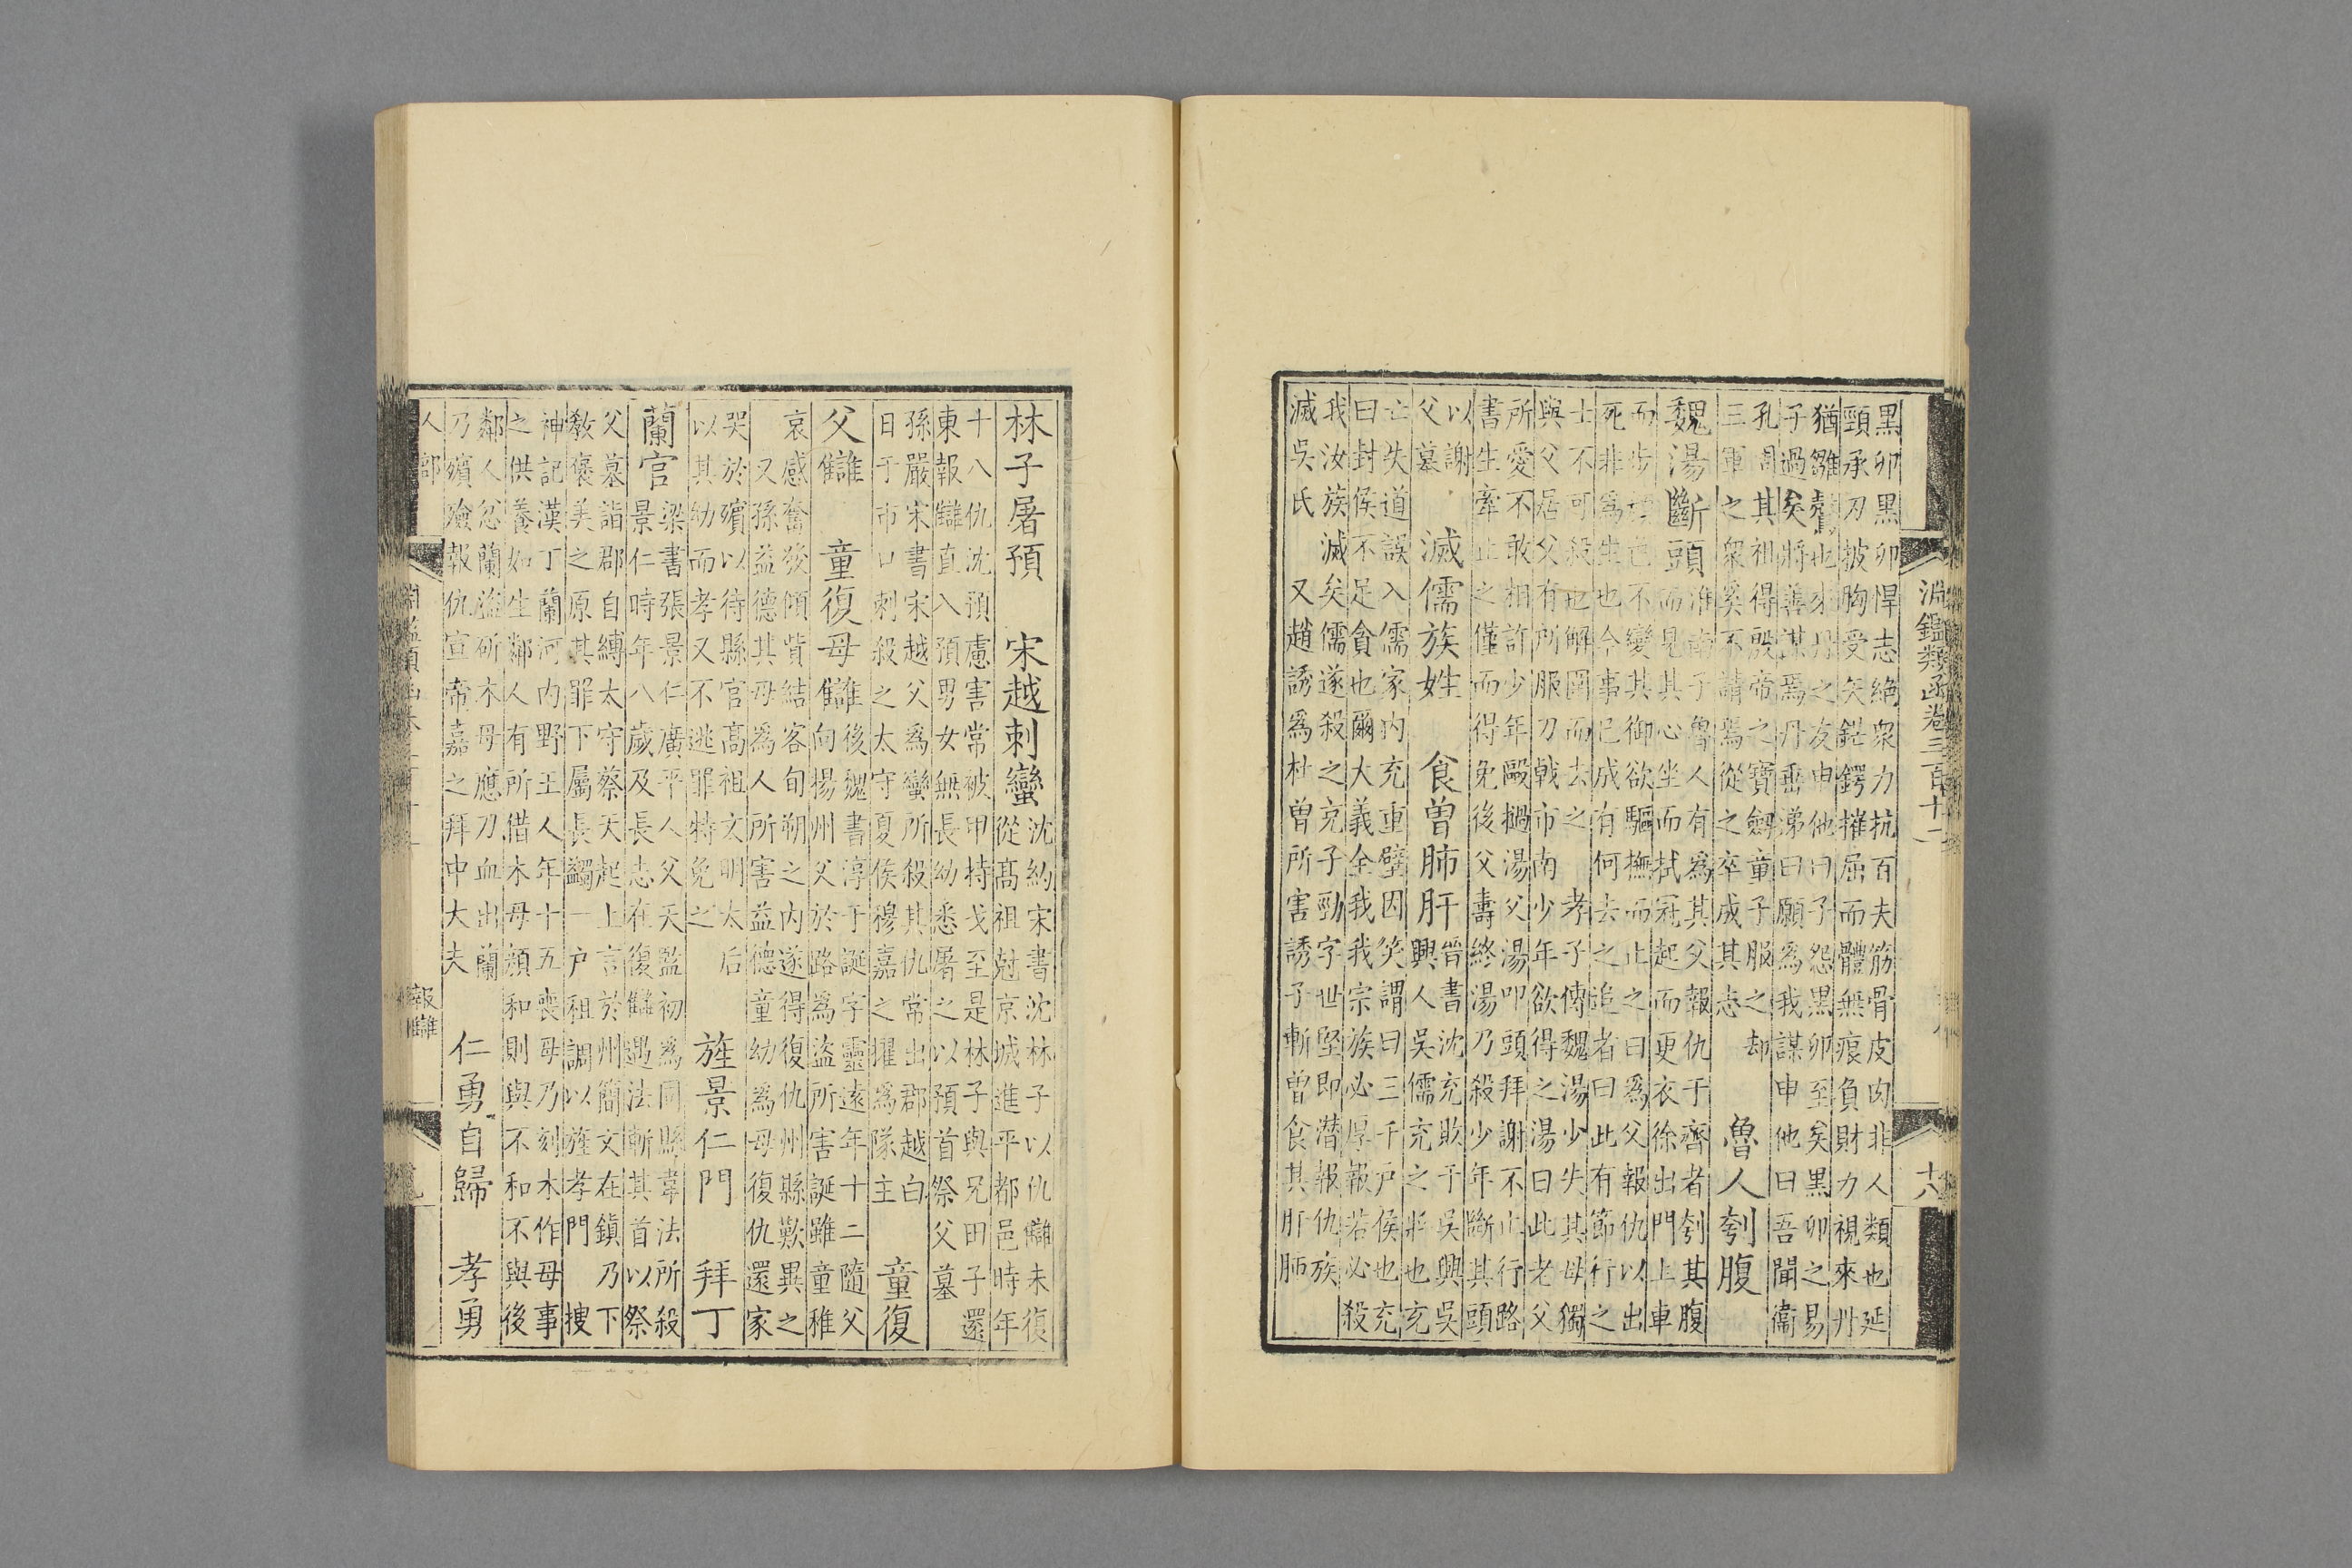 淵鑑類函卷三百十二 十八
黑卵黑卵悍志絶衆力抗百夫筋骨皮肉非人類也延
頸承刃披胸受矢鋩鍔摧屈而體無痕負財力視來丹
猶雛鷇也來丹之友申他曰子怨黑卵至矣黑卵之易
子過矣將善謀焉丹垂涕曰願爲我謀申他曰吾聞衞
孔周其祖得殷帝之寶劒童子服之却
三軍之衆奚不請焉從之卒成其志
魯人刳腹
魏湯斷頭
淮南子魯人有爲其父報仇于齊者刳其腹
而見其心坐而拭冠起而更衣徐出門上車
而步顔色不變其御欲驅撫而止之曰爲父報仇以出
死非爲生也今事已成有何去之追者曰此有節行之
士不可殺也解圍而去之 孝子傳魏湯少失其母獨
與父居父有所服刀戟市南少年欲得之湯曰此老父
所愛不敢相許少年毆撾湯父湯叩頭拜謝不止行路
書生牽止之僅而得免後父壽終湯乃殺少年斷其頭
以謝
父墓
滅儒族姓 食曾肺肝
晉書沈充敗于吳興吳
興人吳儒充之將也充
亡失道誤入儒家内充重壁因笑謂曰三千戸侯也充
曰封侯不足貪也爾大義全我我宗族必厚報若必殺
我汝族滅矣儒遂殺之充子勁字世堅即潜報仇族
滅吳氏 又趙誘爲杜曾所害誘子斬曾食其肝肺
林子屠預 宋越刺蠻
沈約宋書沈林子以仇讎未復
從髙祖尅京城進平都邑時年
十八仇沈預慮害常被甲持戈至是林子與兄田子還
東報讎直入預男女無長幼悉屠之以預首祭父墓
孫嚴宋書宋越父爲蠻所殺其仇常出郡越白
日于市口刺殺之太守夏侯穆嘉之擢爲隊主
童復
父讎 童復母讎
後魏書淳于誕字靈遠年十二隨父
向揚州父於路爲盜所害誕雖童稚
哀感奮發傾貲結客旬朔之内遂得復仇州縣歎異之
又孫益德其母爲人所害益德童幼爲母復仇還家
哭於殯以待縣官髙祖文明太后
以其幼而孝又不逃罪特免之
旌景仁門 拜丁
蘭官
梁書張景仁廣平人父天監初爲同縣韋法所殺
景仁時年八歲及長志在復讎遇法斬其首以祭
父墓詣郡自縛太守蔡天起上言於州簡文在鎮乃下
教褒美之原其罪下屬長蠲一户租調以旌孝門 搜
神記漢丁蘭河内野王人年十五喪母乃刻木作母事
之供養如生鄰人有所借木母顔和則與不和不與後
鄰人忿蘭盜斫木母應刀血出蘭
乃殯殮報仇宣帝嘉之拜中大夫
仁勇自歸 孝勇
人部 報讎